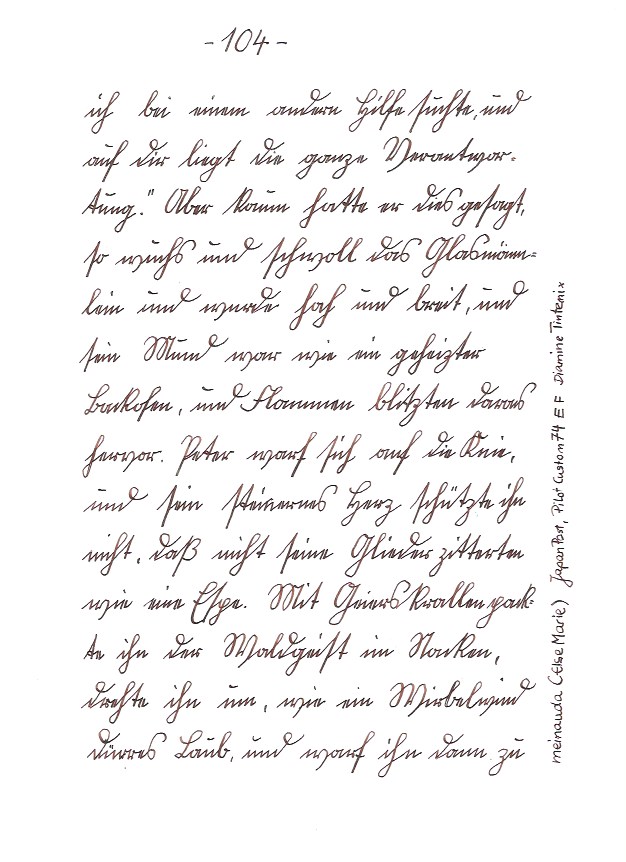 - 104 -
ich bei einem andern Hilfe suchte, und
auf dir liegt die ganze Verantwor-
tung." Aber kaum hatte er dies gesagt,
so wuchs und schwoll das Glasmänn=
lein und wurde hoch und breit, und
sein Mund war wie ein geheizter
Backofen, und Flammen blitzten daraus
hervor. Peter warf sich auf die Knie,
und sein steinernes Herz schützte ihn
nicht, daß nicht seine Glieder zitterten
wie eine Espe. Mit Geierskrallen pack=
te ihn der Waldgeist im Nacken,
drehte ihn um, wie ein Wirbelwind
dürres Laub, und warf ihn dann zu
meinauda (Else Marie) Japanpost, Pilot Custom 74 EF Diamine Tintenix